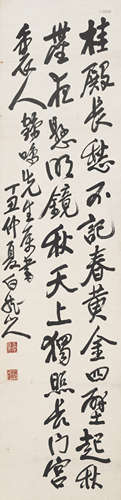 桂殿長愁不記春黃金四壁起秋
塵夜懸明鏡秋天上獨照長門宮
裏人 鳴先生屬
丁丑仲夏白龍山人